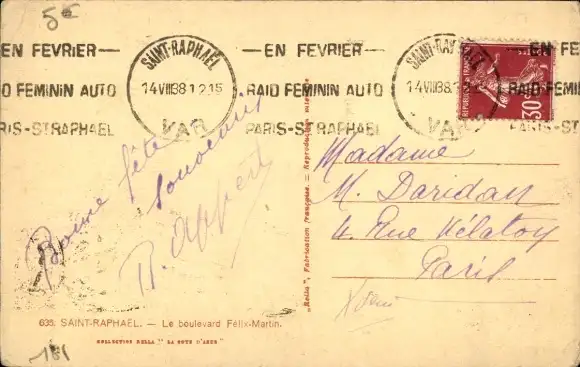 5€
EN FEVRIER
RAID FEMININ AUTO
PARIS-ST RAPHAEL
SAINT-RAPHAEL
14 VIII 38 12 15
VAR
EN FEVRIER
RAID FEMININ AUTO
PARIS-ST RAPHAEL
SAINT-RAPHAEL
14 VIII 38
VAR
EN FE
RAID FEMIN
PARIS-ST
REPUBLIQUE FRANÇAISE
30
Bonne fête
souvenir
R. Appert
Madame
M. Daridan
4. Rue Kélatoy
Paris
„Rella", Fabrication française. — Reproduction
635. SAINT-RAPHAEL. — Le boulevard Félix-Martin.
COLLECTION RELLA "LA COTE D'AZUR"
181